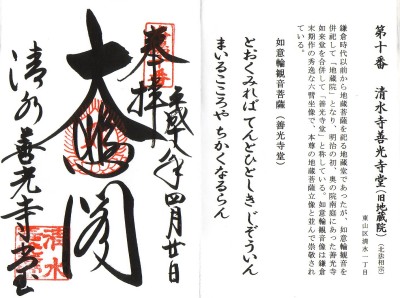 第十番 清水寺善光寺堂(旧地蔵院)(北法相宗)
東山区清水一丁目
鎌倉時代以前から地蔵菩薩を祀る地蔵堂であったが、如意輪観音を
併祀して「地蔵院」となり、明治の初め、奥の院南庭にあった善光寺
如来堂を合併して「善光寺堂」と称している。如意輪観音像は鎌倉
末期作の秀逸な六臂坐像で、本尊の地蔵菩薩立像と並んで崇敬され
ている。
如意輪観音菩薩(善光寺堂)
とおくみれば てんとひとしき じぞういん
まいるこころや ちかくなるらん
奉拝
四月廿日
大悲閣
清水善光寺堂
清水